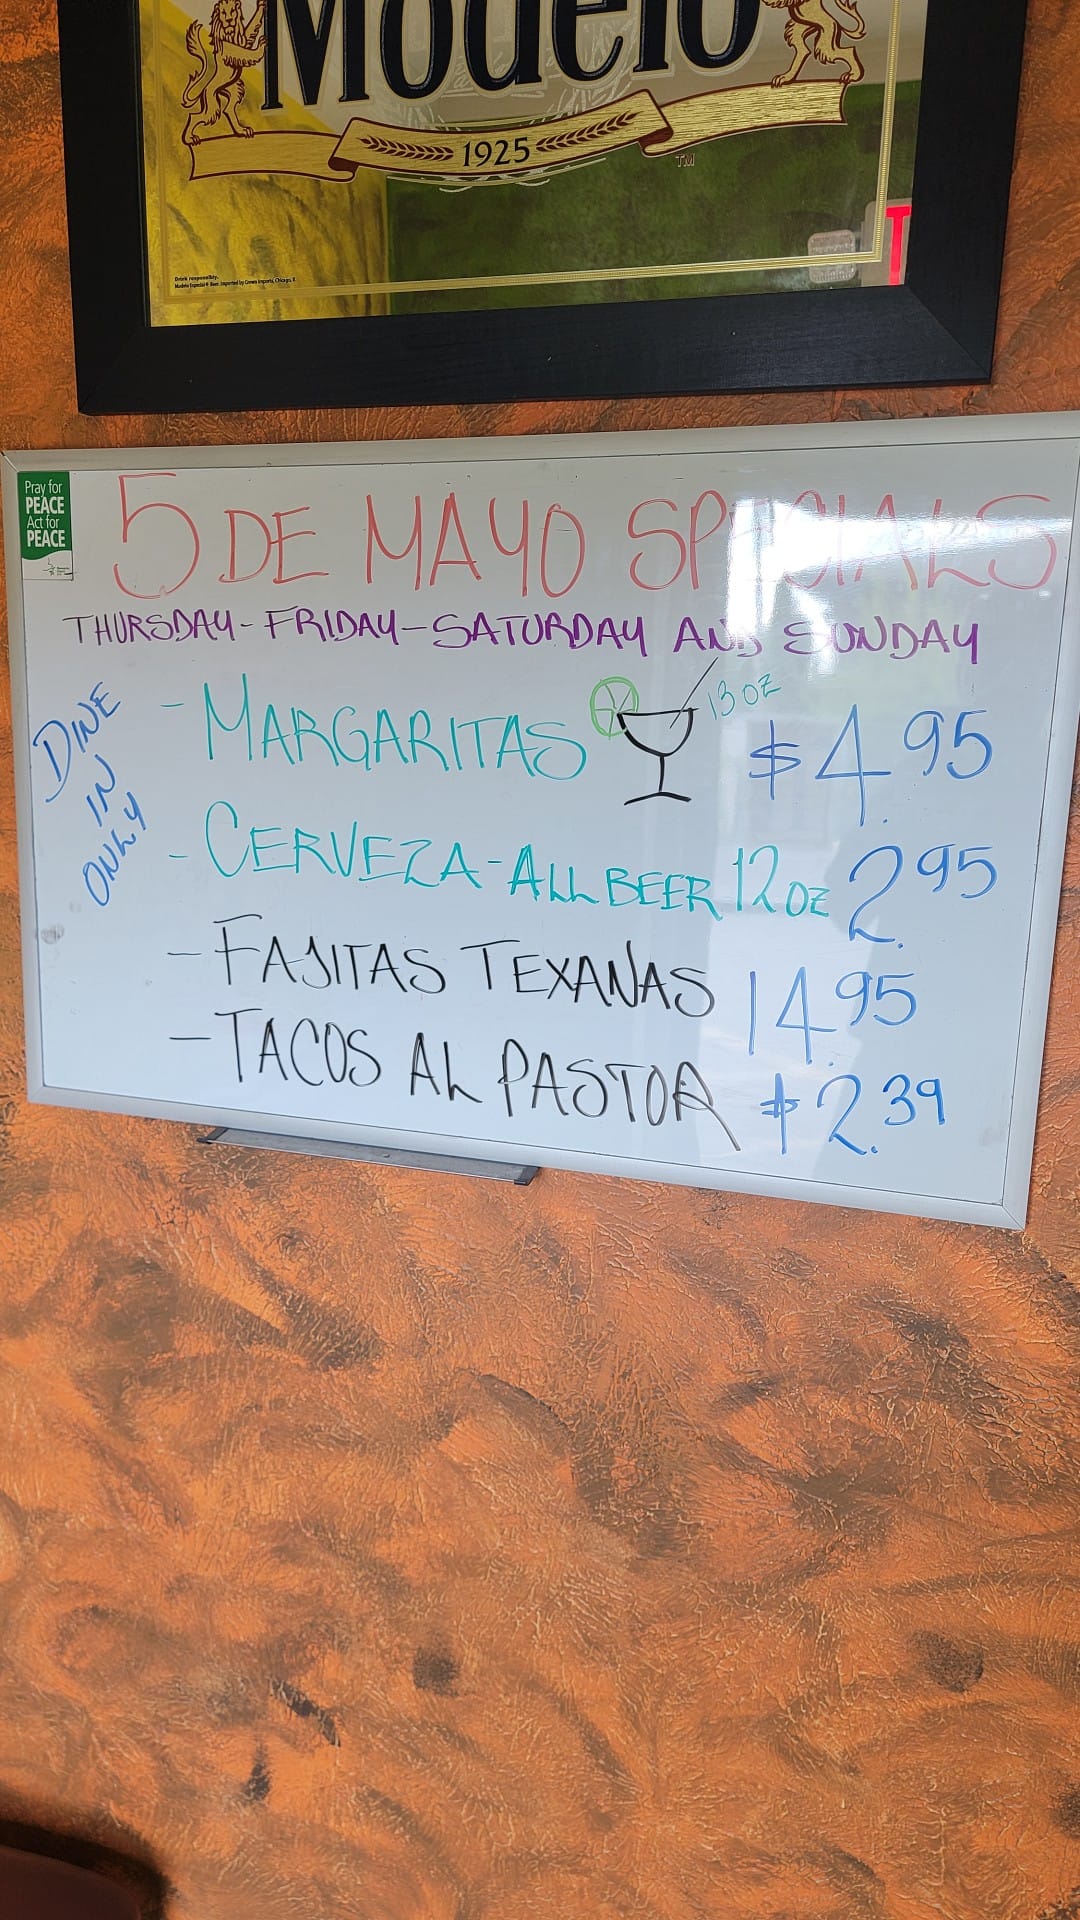 Modelo
1925
TM
Drink responsibly.
Modelo Especial® Beer. Imported by Crown Imports, Chicago, IL
Pray for
PEACE
Act for
PEACE
5 DE MAYO SPECIALS
THURSDAY-FRIDAY-SATURDAY AND SUNDAY
DINE
IN
ONLY
- MARGARITAS 13 OZ $4.95
- CERVEZA-ALL BEER 12 OZ 2.95
- FAJITAS TEXANAS 14.95
- TACOS AL PASTOR $2.39